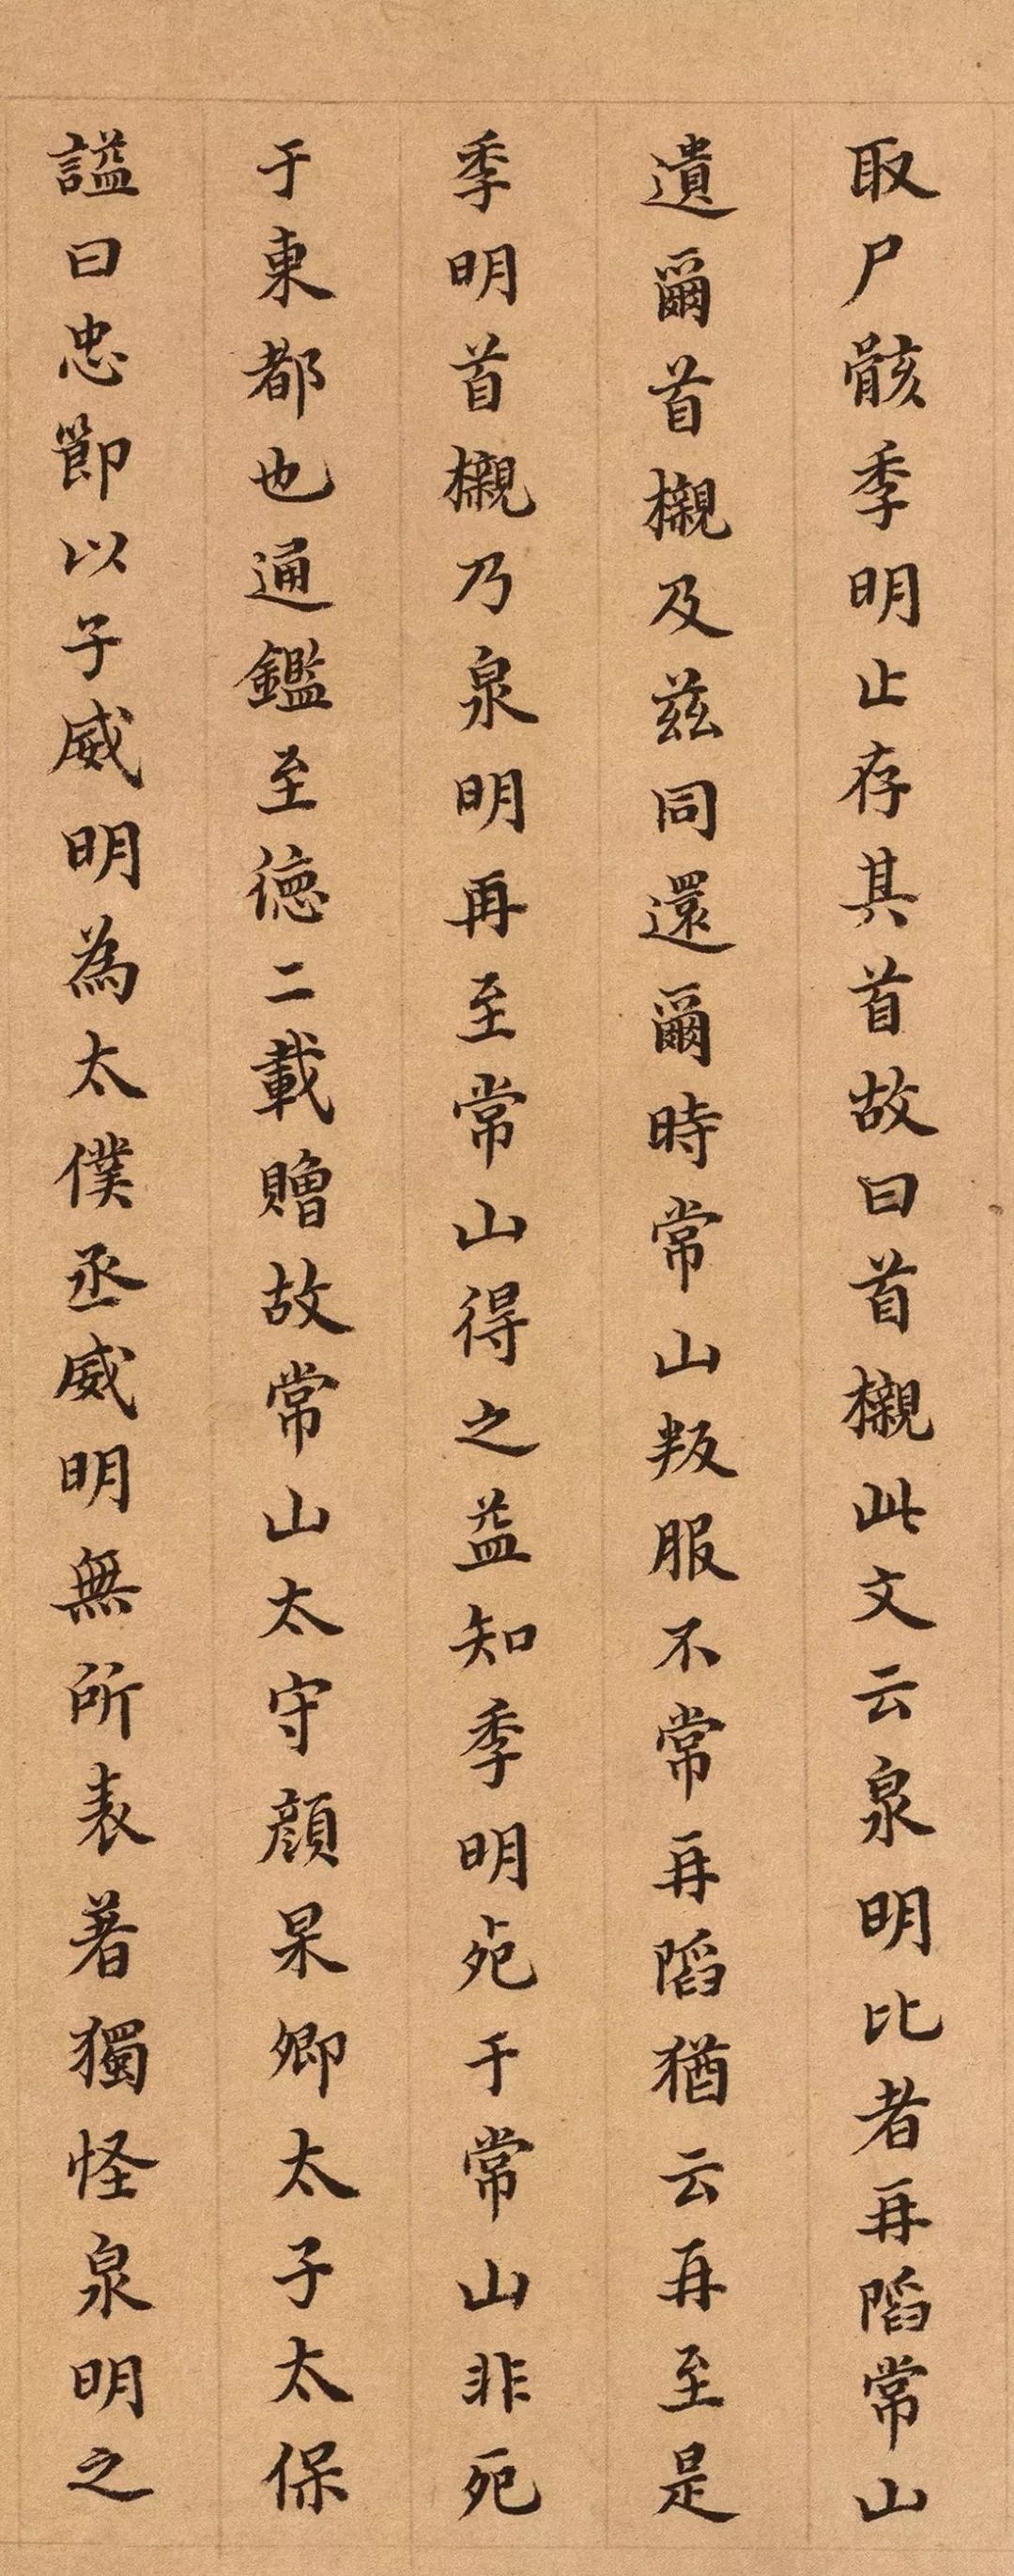 取尸骸季明止存其首故曰首櫬此文云泉明比者再䧟常山
遺爾首櫬及兹同還爾時常山叛服不常再䧟猶云再至是
季明首櫬乃泉明再至常山得之益知季明死于常山非死
于東都也通鑑至徳二載贈故常山太守顔杲卿太子太保
謚曰忠節以子威明為太僕丞威明無所表著獨怪泉明之